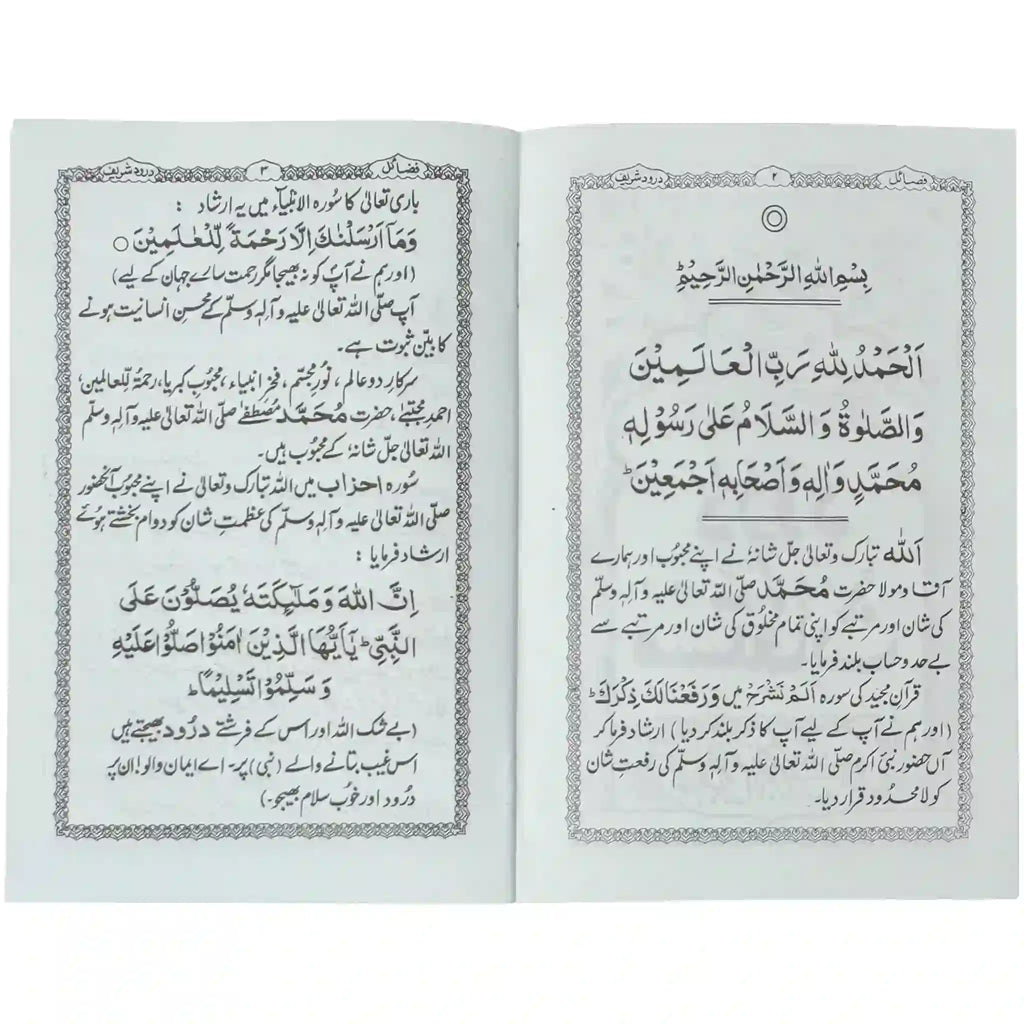 فضائل ۲ درود شریف
بِسْمِ اللهِ الرَّحْمٰنِ الرَّحِيْمِ ؕ
اَلْحَمْدُ لِلّٰهِ رَبِّ الْعَالَمِيْنَ
وَالصَّلٰوةُ وَالسَّلَامُ عَلٰى رَسُوْلِهٖ
مُحَمَّدٍ وَّاٰلِهٖ وَاَصْحَابِهٖ اَجْمَعِيْنَ ؕ
اَللہ تبارک وتعالیٰ جل شانہٗ نے اپنے محبُوب اور ہمارے
آقا و مولا حضرت مُحَمَّد صلّی اللہ تعالیٰ علیہ و آلہٖ وسلّم
کی شان اور مرتبے کو اپنی تمام مخلوُق کی شان اور مرتبے سے
بے حد و حساب بلند فرمایا۔
قرآن مجید کی سورہ اَلَمْ نَشْرَحْ میں وَرَفَعْنَا لَكَ ذِكْرَكَ ؕ
(اور ہم نے آپ کے لیے آپ کا ذکر بلند کر دیا) ارشاد فرما کر
آں حضور نبیٔ اکرم صلّی اللہ تعالیٰ علیہ و آلہٖ وسلّم کی رفعتِ شان
کو لا محدُود قرار دیا۔
فضائل ۳ درود شریف
باری تعالیٰ کا سُورہ الانبیآء میں یہ ارشاد :
وَمَآ اَرْسَلْنٰكَ اِلَّا رَحْمَةً لِّلْعٰلَمِيْنَ ○
(اور ہم نے آپؐ کو نہ بھیجا مگر رحمت سارے جہان کے لیے)
آپ صلّی اللہ تعالیٰ علیہ و آلہٖ وسلّم کے محسنِ انسانیت ہونے
کا بیّن ثبوت ہے۔
سرکارِ دو عالم ، نورِ مجسّم ، فخرِ انبیاء ، محبُوبِ کبریا، رحمۃ للّعالمین،
احمدِ مجتبےٰ ، حضرت مُحَمَّد مُصطفےٰ صلّی اللہ تعالیٰ علیہ و آلہٖ وسلّم
اللہ تعالیٰ جلّ شانہٗ کے محبُوب ہیں۔
سُورہ احزاب میں اللہ تبارک وتعالیٰ نے اپنے محبُوب آنحضُور
صلّی اللہ تعالیٰ علیہ و آلہٖ وسلّم کی عظمتِ شان کو دوام بخشتے ہُوئے
ارشاد فرمایا :
اِنَّ اللهَ وَمَلٰٓئِكَتَهٗ يُصَلُّوْنَ عَلَى
النَّبِيِّ ؕ يٰٓاَيُّهَا الَّذِيْنَ اٰمَنُوْا صَلُّوْا عَلَيْهِ
وَسَلِّمُوْا تَسْلِيْمًا ؕ
(بے شک اللہ اور اس کے فرشتے درُود بھیجتے ہیں
اس غیب بتانے والے (نبی) پر۔ اے ایمان والو! ان پر
درُود اور خوُب سلام بھیجو۔)